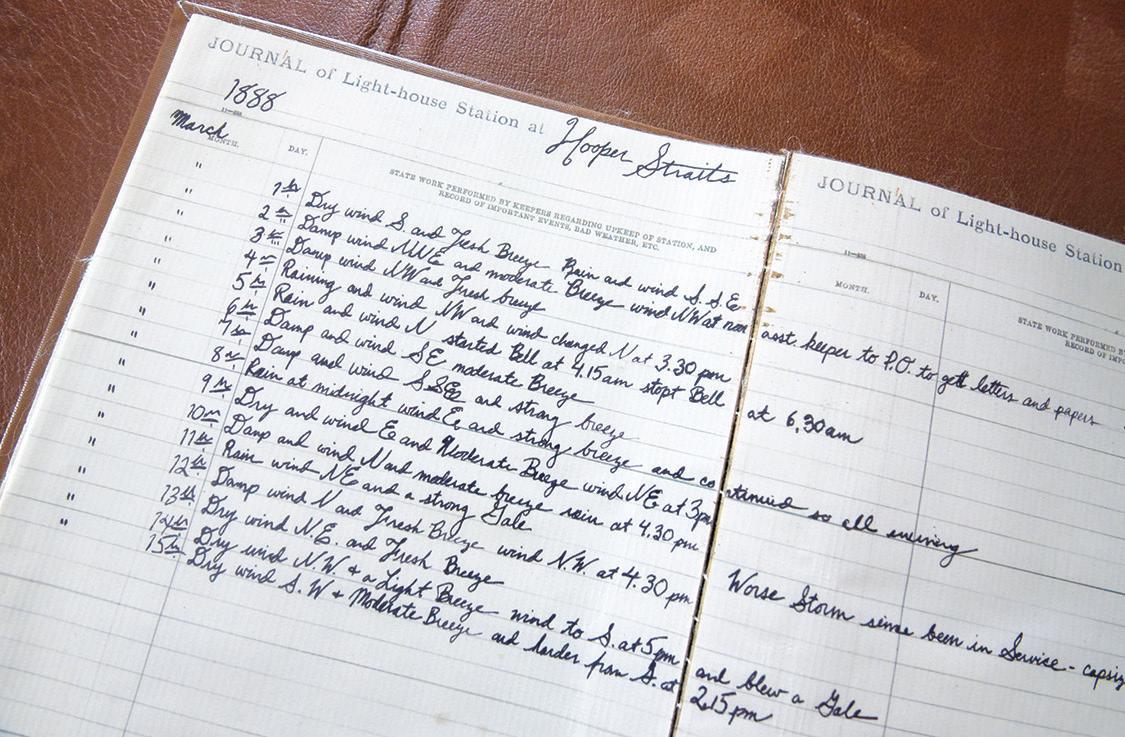 JOURNAL of Light-house Station at Hooper Straits
1888
March
MONTH. DAY.
STATE WORK PERFORMED BY KEEPERS REGARDING UPKEEP OF STATION, AND
RECORD OF IMPORTANT EVENTS, BAD WEATHER, ETC.
" 1st Dry wind S. and Fresh Breeze Rain and wind S.S.E.
" 2nd Damp wind NNE and moderate Breeze wind NW at noon
" 3rd Damp wind NW and Fresh breeze
" 4th Raining and wind NW and wind changed N at 3.30 pm
" 5th Rain and wind N started Bell at 4.15am stopt Bell
" 6th Damp and wind SE moderate Breeze
" 7th Damp and wind SSE and strong breeze
" 8th Rain at midnight wind E and strong breeze and co
" 9th Dry and wind E and Moderate Breeze wind NE at 3pm
" 10th Damp and wind N and moderate breeze rain at 4.30 pm
" 11th Rain wind NE and a strong Gale
" 12th Damp wind N and Fresh Breeze wind N.W. at 4.30 pm
" 13th Dry wind N.E. and Fresh Breeze
" 14th Dry wind NW + a Light Breeze wind to S. at 5pm
15th Dry wind S.W + Moderate Breeze and harder from S. at
JOURNAL of Light-house Station
MONTH. DAY.
STATE WORK PERFORMED B
RECORD OF IMPO
asst. keeper to P.O. to get letters and papers
at 6.30am
ntinued so all evening
Worse Storm since been in Service - capsiz
and blew a Gale
2.15pm